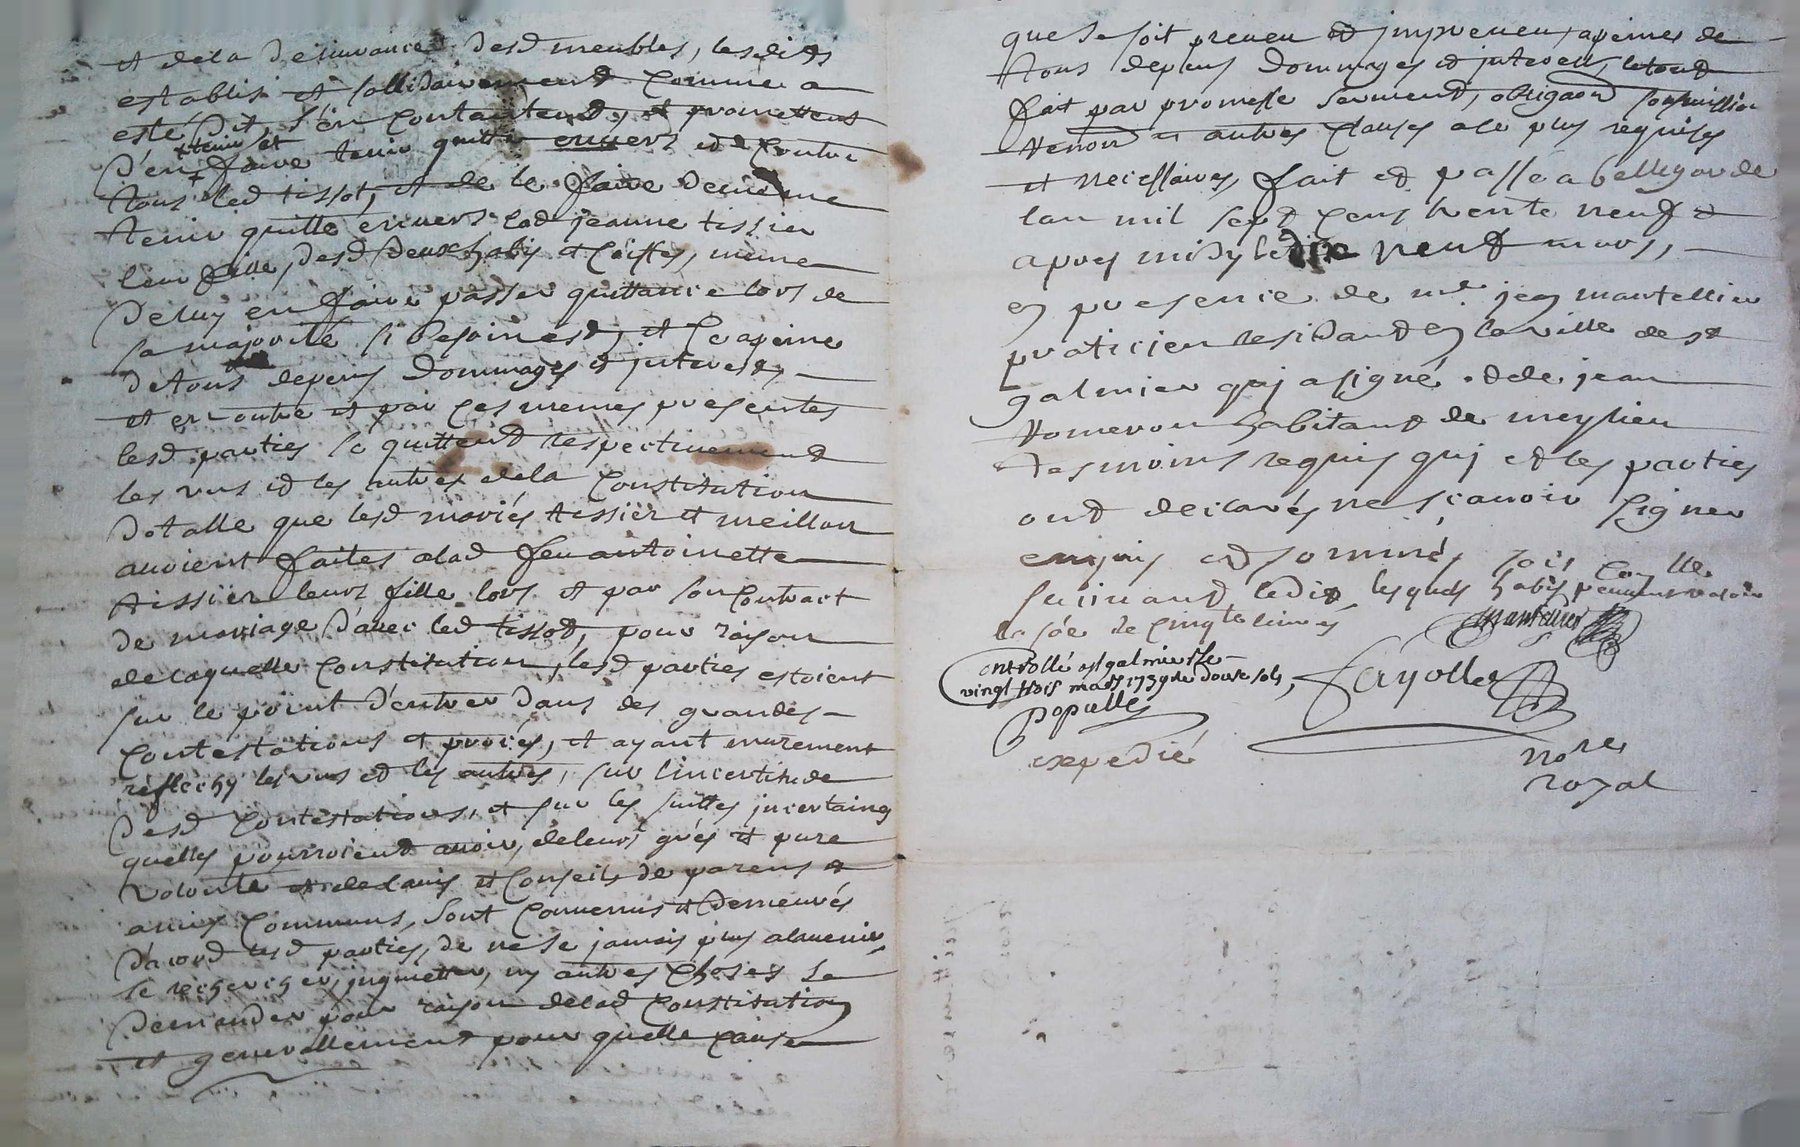 et dela delivrance desd meubles, lesdits
establis et sollidairement comme a
esté dit, s'en contantent, et promettent
d'en faire tenir quitte envers et contre
tenir et
tous led tissot, et de le faire de meme
tenir quitte envers lad jeanne tissier
leur fille, desd deux habis et coiffes, meme
de luy en faire passer quittance lors de
sa majorité si besoin est, et ce a peine
de tous depens dommages et interests
et en outre et par ces memes presentes
lesd parties se quittent respectivement
les uns et les autres dela constitution
dotalle que lesd mariés tissier et meillon
avoient faites alad feu antoinette
tissier leurs fille lors et par son contract
de mariage d'avec led tissot, pour raison
de laquelle constitution, lesd parties estoient
sur le point d'entrer dans des grandes
contestations et procés, et ayant murement
reflechy les uns et les autres, sur l'incertitude
desd contestations, et sur les suittes incertaines
quelles pourroient avoir, de leurs grés et pure
volonté et de lavis et conseils de parens et
amis communs, sont convenus et demeurés
d'acord lesd parties, de ne se jamais plus alavenir
se rechercher, inquietter, ny autres choses se
demander pour raison delad constitution
et generallement pour quelle cause
que se soit preveu et impreveu, a peines de
tous depens dommages et interests, le tout
fait par promesse serment, obligaon soumission
renon et autres clauses ale plus requises
et necessaires, fait et passé a bellegarde
lan mil sept cens trente neuf et
apres midy le dix neuf mars,
en presence de me jean mantellier
praticien residant en la ville de st
galmier qui a signé et de jean
habitant de meylieu
tesmoins requis qui et les parties
ont declarés ne scavoir signer
enquis et sommés
suivant ledit lesquels habis peuvent valoir
la soe de cinq livres
Mantellier
Controllé a st galmier le
vingt trois mars 1739 re douse sols,
Popielle
Fayolle
expedié
nore
royal